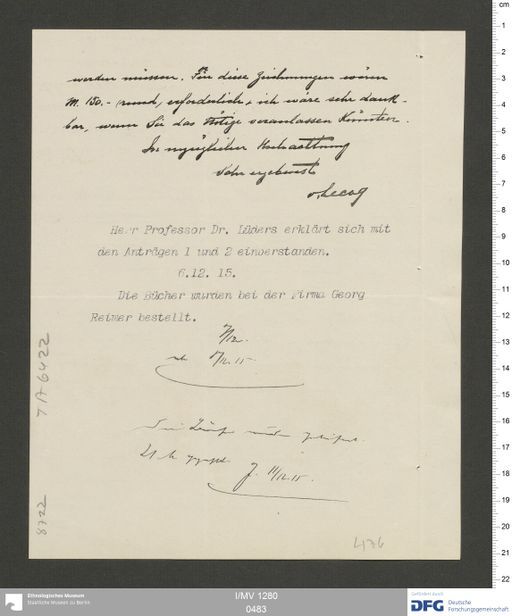 werden müssen. Für diese Zeichnungen wären
M. 150.- (rund) erforderlich & ich wäre sehr dank-
bar, wenn Sie das Nötige veranlassen könnten.
In vorzüglicher Hochachtung
Sehr ergebenst
v. Lecoq
Herr Professor Dr. Lüders erklärt sich mit
den Anträgen 1 und 2 einverstanden.
6.12. 15.
Die Bücher wurden bei der Firma Georg
Reimer bestellt.
7/12.
7/12.15
11/12.15.
7 A 6422
8722
476
cm
1
2
3
4
5
6
7
8
9
10
11
12
13
14
15
16
17
18
19
20
21
22
Ethnologisches Museum
Staatliche Museen zu Berlin
I/MV 1280
0483
Gefördert durch
DFG Deutsche
Forschungsgemeinschaft